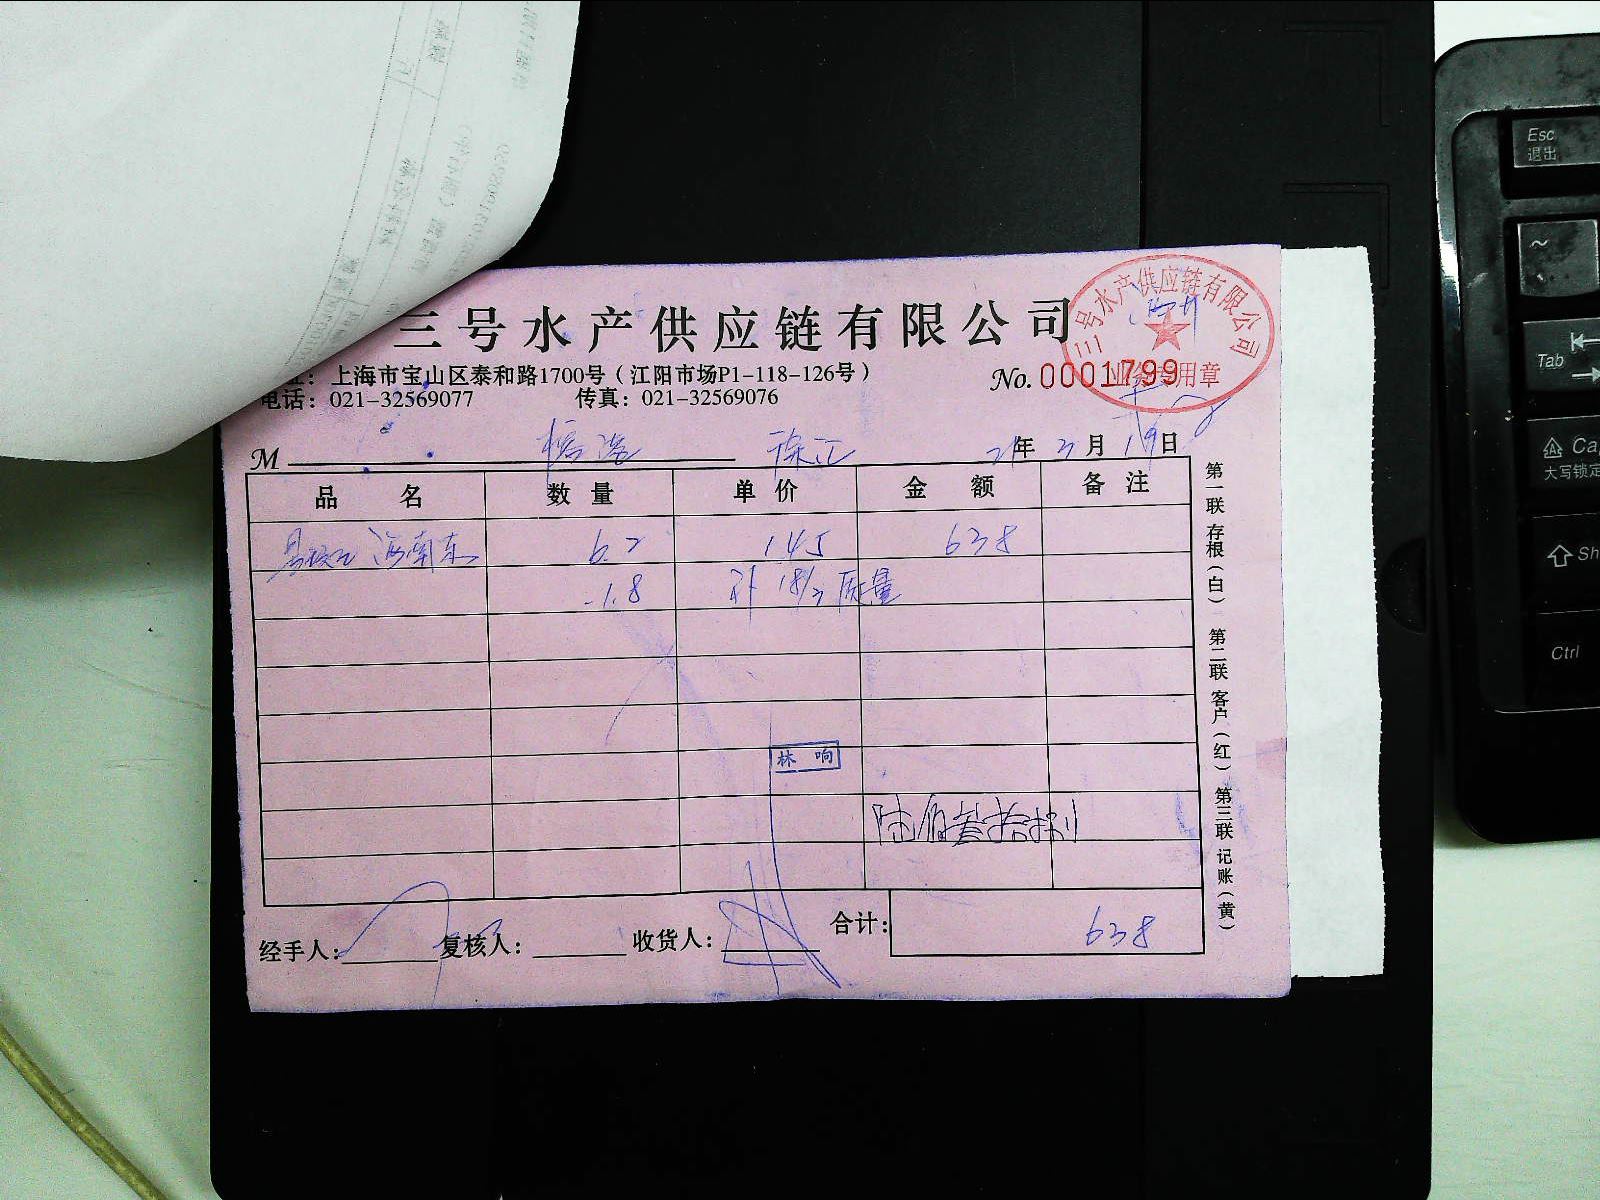 三号水产供应链有限公司
三号水产供应链有限公司
业务专用章
址：上海市宝山区泰和路1700号（江阳市场P1-118-126号）
No. 0001799
电话：021-32569077 传真：021-32569076
M 徐汇 21年3月19日
品名 数量 单价 金额 备注
海南东 6.2 145 638
-1.8 补 18/3 质量
林响
陆佰叁拾捌
合计：638
经手人： 复核人： 收货人：
第一联 存根（白） 第二联 客户（红） 第三联 记账（黄）
Esc
退出
~
Tab
Ca
大写锁定
Sh
Ctrl